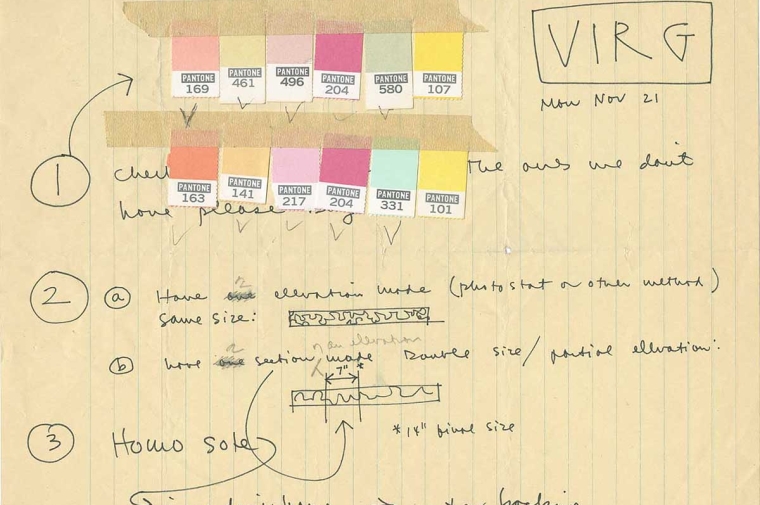 VIRG
Mon Nov 21
PANTONE 169 PANTONE 461 PANTONE 496 PANTONE 204 PANTONE 580 PANTONE 107
PANTONE 163 PANTONE 141 PANTONE 217 PANTONE 204 PANTONE 331 PANTONE 101
1 the ones we don't
have please buy
2 a Have 2 elevation made (photostat or other method)
same size:
of an elevation
b have 2 section made Double size/partial ellvation:
7" *
* 14" final size
3 Homo sote